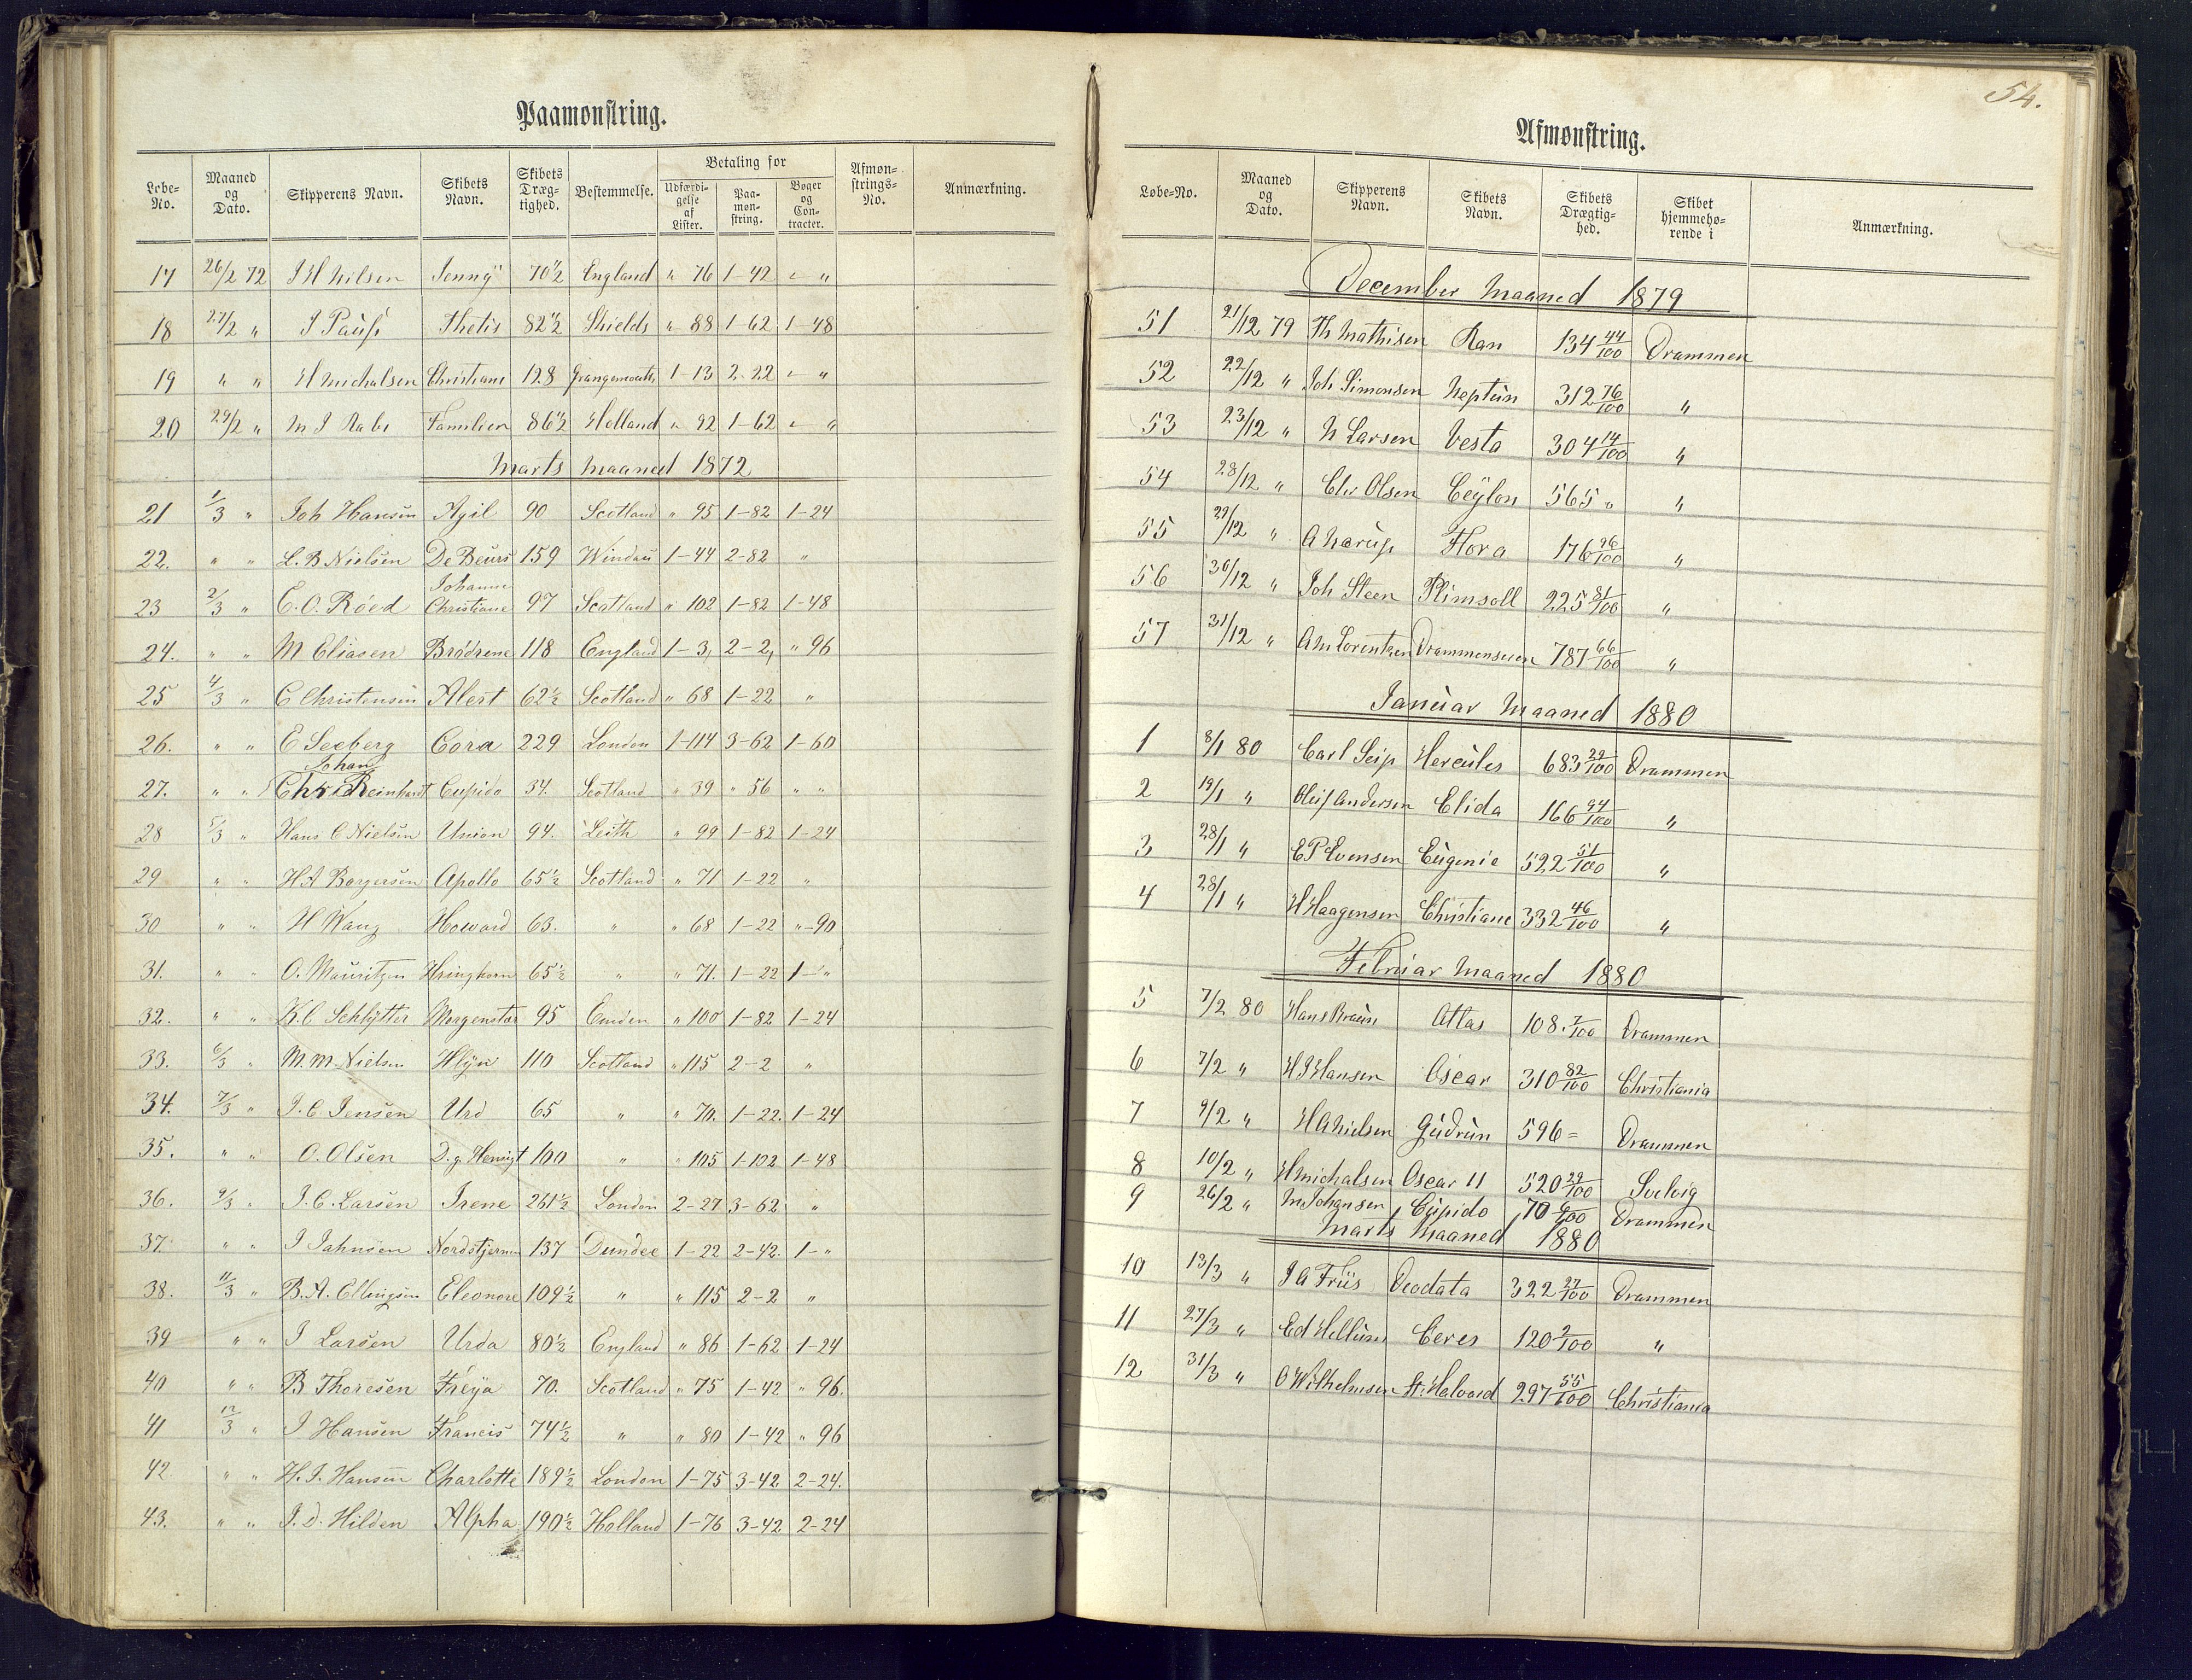 Paamønstring.
Løbe-No. | Maaned og Dato. | Skipperens Navn. | Skibets Navn. | Skibets Dræg-tighed. | Bestemmelse. | Betaling for | Udfærdi-gelse af Lister. | Paa-møn-string. | Bøger og Con-tracter. | Afmøn-strings-No. | Anmærkning.
17 26/2 72 J H Nilsen Jenny 70 1/2 England " 76 1-42 " "
18 27/2 " J Pauss Thetis 82 1/2 Shields " 88 1-62 1-48
19 " " H Michalsen Christiane 128 Grangemouth 1-13 2-22 " "
20 29/2 " M J Rabe Familien 86 1/2 Holland " 92 1-62 " "
Marts Maaned 1872
21 1/3 " Joh Hansen Agil 90 Scotland " 95 1-82 1-24
22. " " L. B Nielsen De Beurs 159 Windau 1-44 2-82 "
23 2/3 " E. O. Röed Johanne Christiane 97 Scotland " 102 1-82 1-48
24. " " M Eliasen Brödrene 118 England 1-3, 2-2, " 96
25 4/3 " C Christensen Alert 62 1/2 Scotland " 68 1-22 "
26. " " E Seeberg Cora 229 London 1-114 3-62 1-60
27. " " Johan Chr Reinhardt Cupido 34. Scotland " 39 " 56 " "
28 5/3 " Hans C Nielsen Union 94. Leith " 99 1-82 1-24
29 " " H A Borgersen Apollo 65 1/2 Scotland " 71 1-22 "
30 " " H Wang Howard 63. " " 68 1-22 "-90
31. " " O. Mauritzen Hringhorn 65 1/2 " " 71. 1-22 1-"
32. " " K. C Schlytter Morgenstar 95 Emden " 100 1-82 1-24
33. 6/3 " M. M. Nielsen Hlyn 110 Scotland " 115 2-2 "
34. 7/3 " J. C. Jensen Urd 65 " " 70. 1-22. 1-24
35. " " O. Olsen D. g. Hensigt 100 " " 105 1-102 1-48
36. 9/3 " J. C. Larsen Irene 261 1/2 London 2-27 3-62 "
37. " " J Jahnsen Nordstjernen 137 Dundee 1-22 2-42. 1-"
38. 11/3 " B. A. Ellingsen Eleonore 109 1/2 " " 115 2-2 "
39 " " J Larsen Urda 80 1/2 England " 86 1-62 1-24
40 " " B Thoresen Freya 70. Scotland " 75 1-42 " 96.
41 12/3 " J Hansen Francis 74 1/2 " " 80 1-42 " 96
42 " " H. J. Hansen Charlotte 189 1/2 London 1-75 3-42 2-24.
43. " " J. D. Hilden Alpha 190 1/2 Holland 1-76 3-42 2-24
54.
Afmønstring.
Løbe-No. | Maaned og Dato. | Skipperens Navn. | Skibets Navn. | Skibets Drægtig-hed. | Skibet hjemmehø-rende i | Anmærkning.
December Maaned 1879
51 21/12 79 Th Mathisen Ran 134 44/100 Drammen
52 22/12 " Joh Simensen Neptun 312 76/100 "
53 23/12 " N Larsen Vesta 304 14/100 "
54 28/12 " Chr Olsen Ceylon 565 " "
55 29/12 " A Narup Flora 176 96/100 "
56 30/12 " Joh Steen Plimsoll 225 81/100 "
57 31/12 " A M Lorentzen Drammenseren 787 66/100 "
Januar Maaned 1880
1 8/1 80 Carl Seip Hercules 683 29/100 Drammen
2 19/1 " Oluf Andersen Elida 166 94/100 "
3 28/1 " E P Evensen Eugenie 522 51/100 "
4 28/1 " H Haagensen Christiane 332 46/100 "
Februar Maaned 1880
5 7/2 80 Hans Bruun Atlas 108. 7/100 Drammen
6 7/2 " H J Hansen Oscar 310 82/100 Christiania
7 9/2 " H A Nielsen Gudrun 596 = Drammen
8 10/2 " H Michalsen Oscar II 520 29/100 Svelvig
9 26/2 " M Johansen Cupido 70 6/100 Drammen
Marts Maaned 1880
10 13/3 " J A Friis Deodata 322 27/100 Drammen
11 27/3 " Ed Hellum Ceres 120 2/100 "
12 31/3 " O Wilhelmsen St. Halvard 297 55/100 Christiania